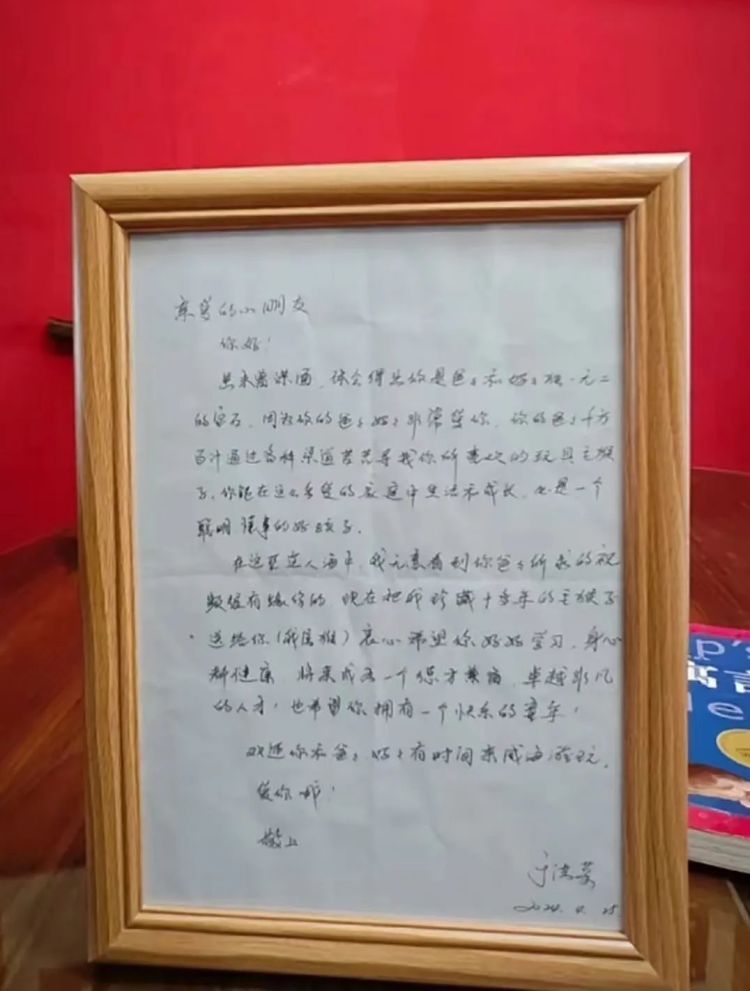 亲爱的小朋友
你好！
虽未曾谋面，体会得出你是爸爸和妈妈独一无二
的宝贝，因为你的爸爸妈妈非常爱你，你的爸爸千方
百计通过各种渠道苦苦寻找你所喜欢的玩具毛猴
子。你能在这么有爱的家庭中生活和成长，也是一个
聪明懂事的好孩子。
在这茫茫人海中，我无意看到你爸爸所求的视
频很有缘份的，现在把我珍藏十多年的毛猴子
送给你（我属猴）衷心希望你好好学习，身心
都健康，将来成为一个德才兼备，卓越非凡
的人才！也希望你拥有一个快乐的童年！
欢迎你和爸爸妈妈有时间来威海游玩。
爱你哪！
敬上
于
2024. 4. 25
p's
寓言
e